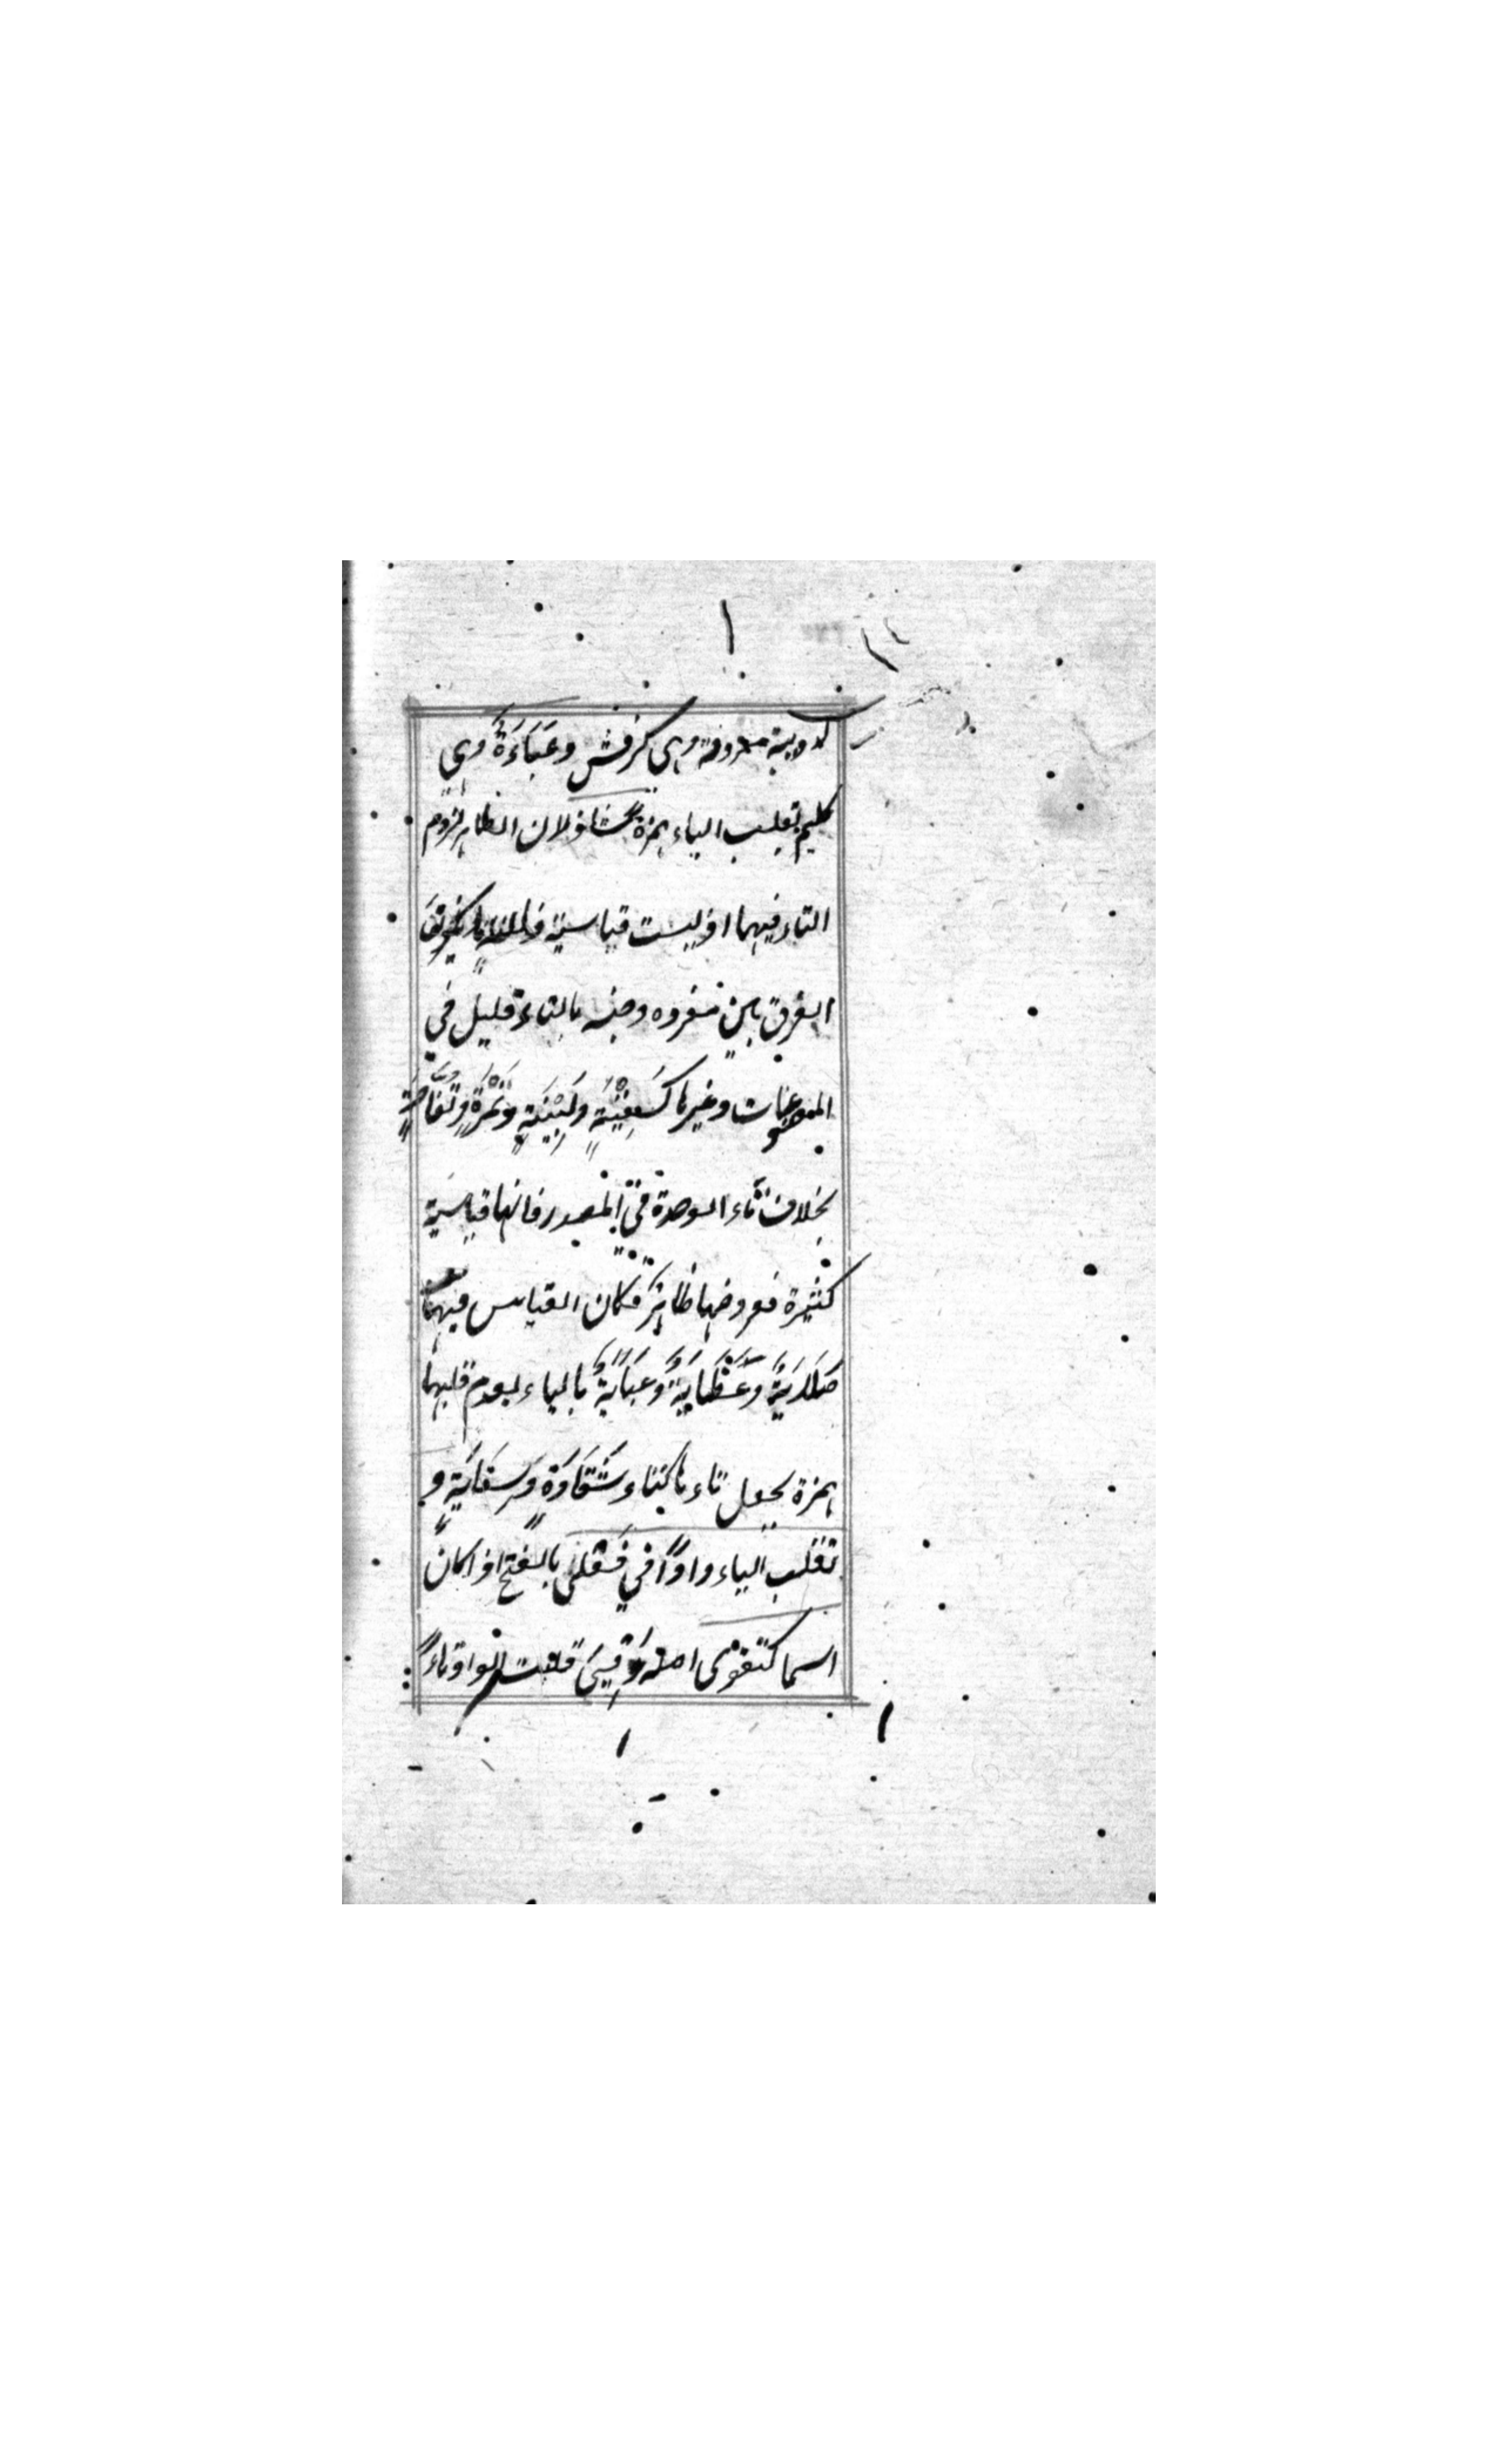 لدويبة معروفة وهى كرفش وعَبَاءَةٌ وهى
كليم بقلب الياء همزة شاذ لان الظاهر لزوم
التاء فيهما اذ ليست قياسية
الفرق بين مفرده وجنسه بالتاء قليل في
المصنوعات وغيرها كسَفِيْنَةٍ ولَبِنَةٍ وتَمْرَةٍ وتُفَّاحَةٍ
بخلاف تاء الوحدة في المصدر فانها قياسية
كثيرة فعروضها ظاهر فكان القياس فيهما
صَلَايَةٌ وعَظَايَةٌ وعَبَايَةٌ بالياء لعدم قلبها
همزة لجعل تاءها كتاء شَقَاوَةٍ وسِقَايَةٍ و
تقلب الياء واوًا في فَعْلٰى بالفتح اذا كان
اسما كتقوى اصله وَقْيَىٰ قلبت الواو تاءً